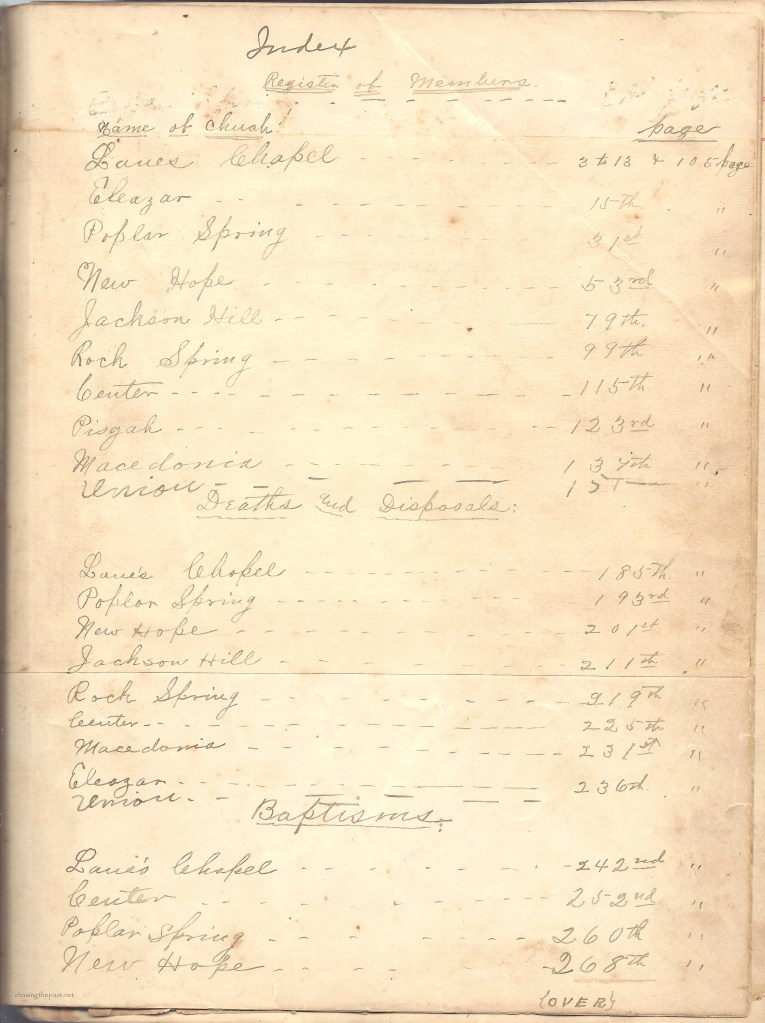 Index
Register of Members.
Name of Chuch! page
Lanes Chapel - - - - 3 to 13 & 105 page
Eleazar - - - - - - - 15th "
Poplar Spring - - - - - 31st "
New Hope - - - - - - 53rd "
Jackson Hill - - - - - 79th. "
Rock Spring - - - - - - 99th "
Center - - - - - - - - 115th "
Pisgah - - - - - - - 123rd "
Macedonia - - - - - - 137th "
Union - - - - - "
Deaths and Disposals:
Lane's Chapel - - - - - - 185th. "
Poplar Spring - - - - - - 193rd "
New Hope - - - - - - - 201st "
Jackson Hill - - - - - - 211th "
Rock Spring - - - - - - 219th "
Center - - - - - - - - 225th "
Macedonia - - - - - - 231st "
Eleazar - - - - - - 236th. "
Union. - - - - -
Baptisms:
Lane's Chapel - - - - - 242nd "
Center - - - - - - 252nd "
Poplar Spring - - - - - 260th "
New Hope - - - - - - 268th "
(OVER)
chasingthepast.net